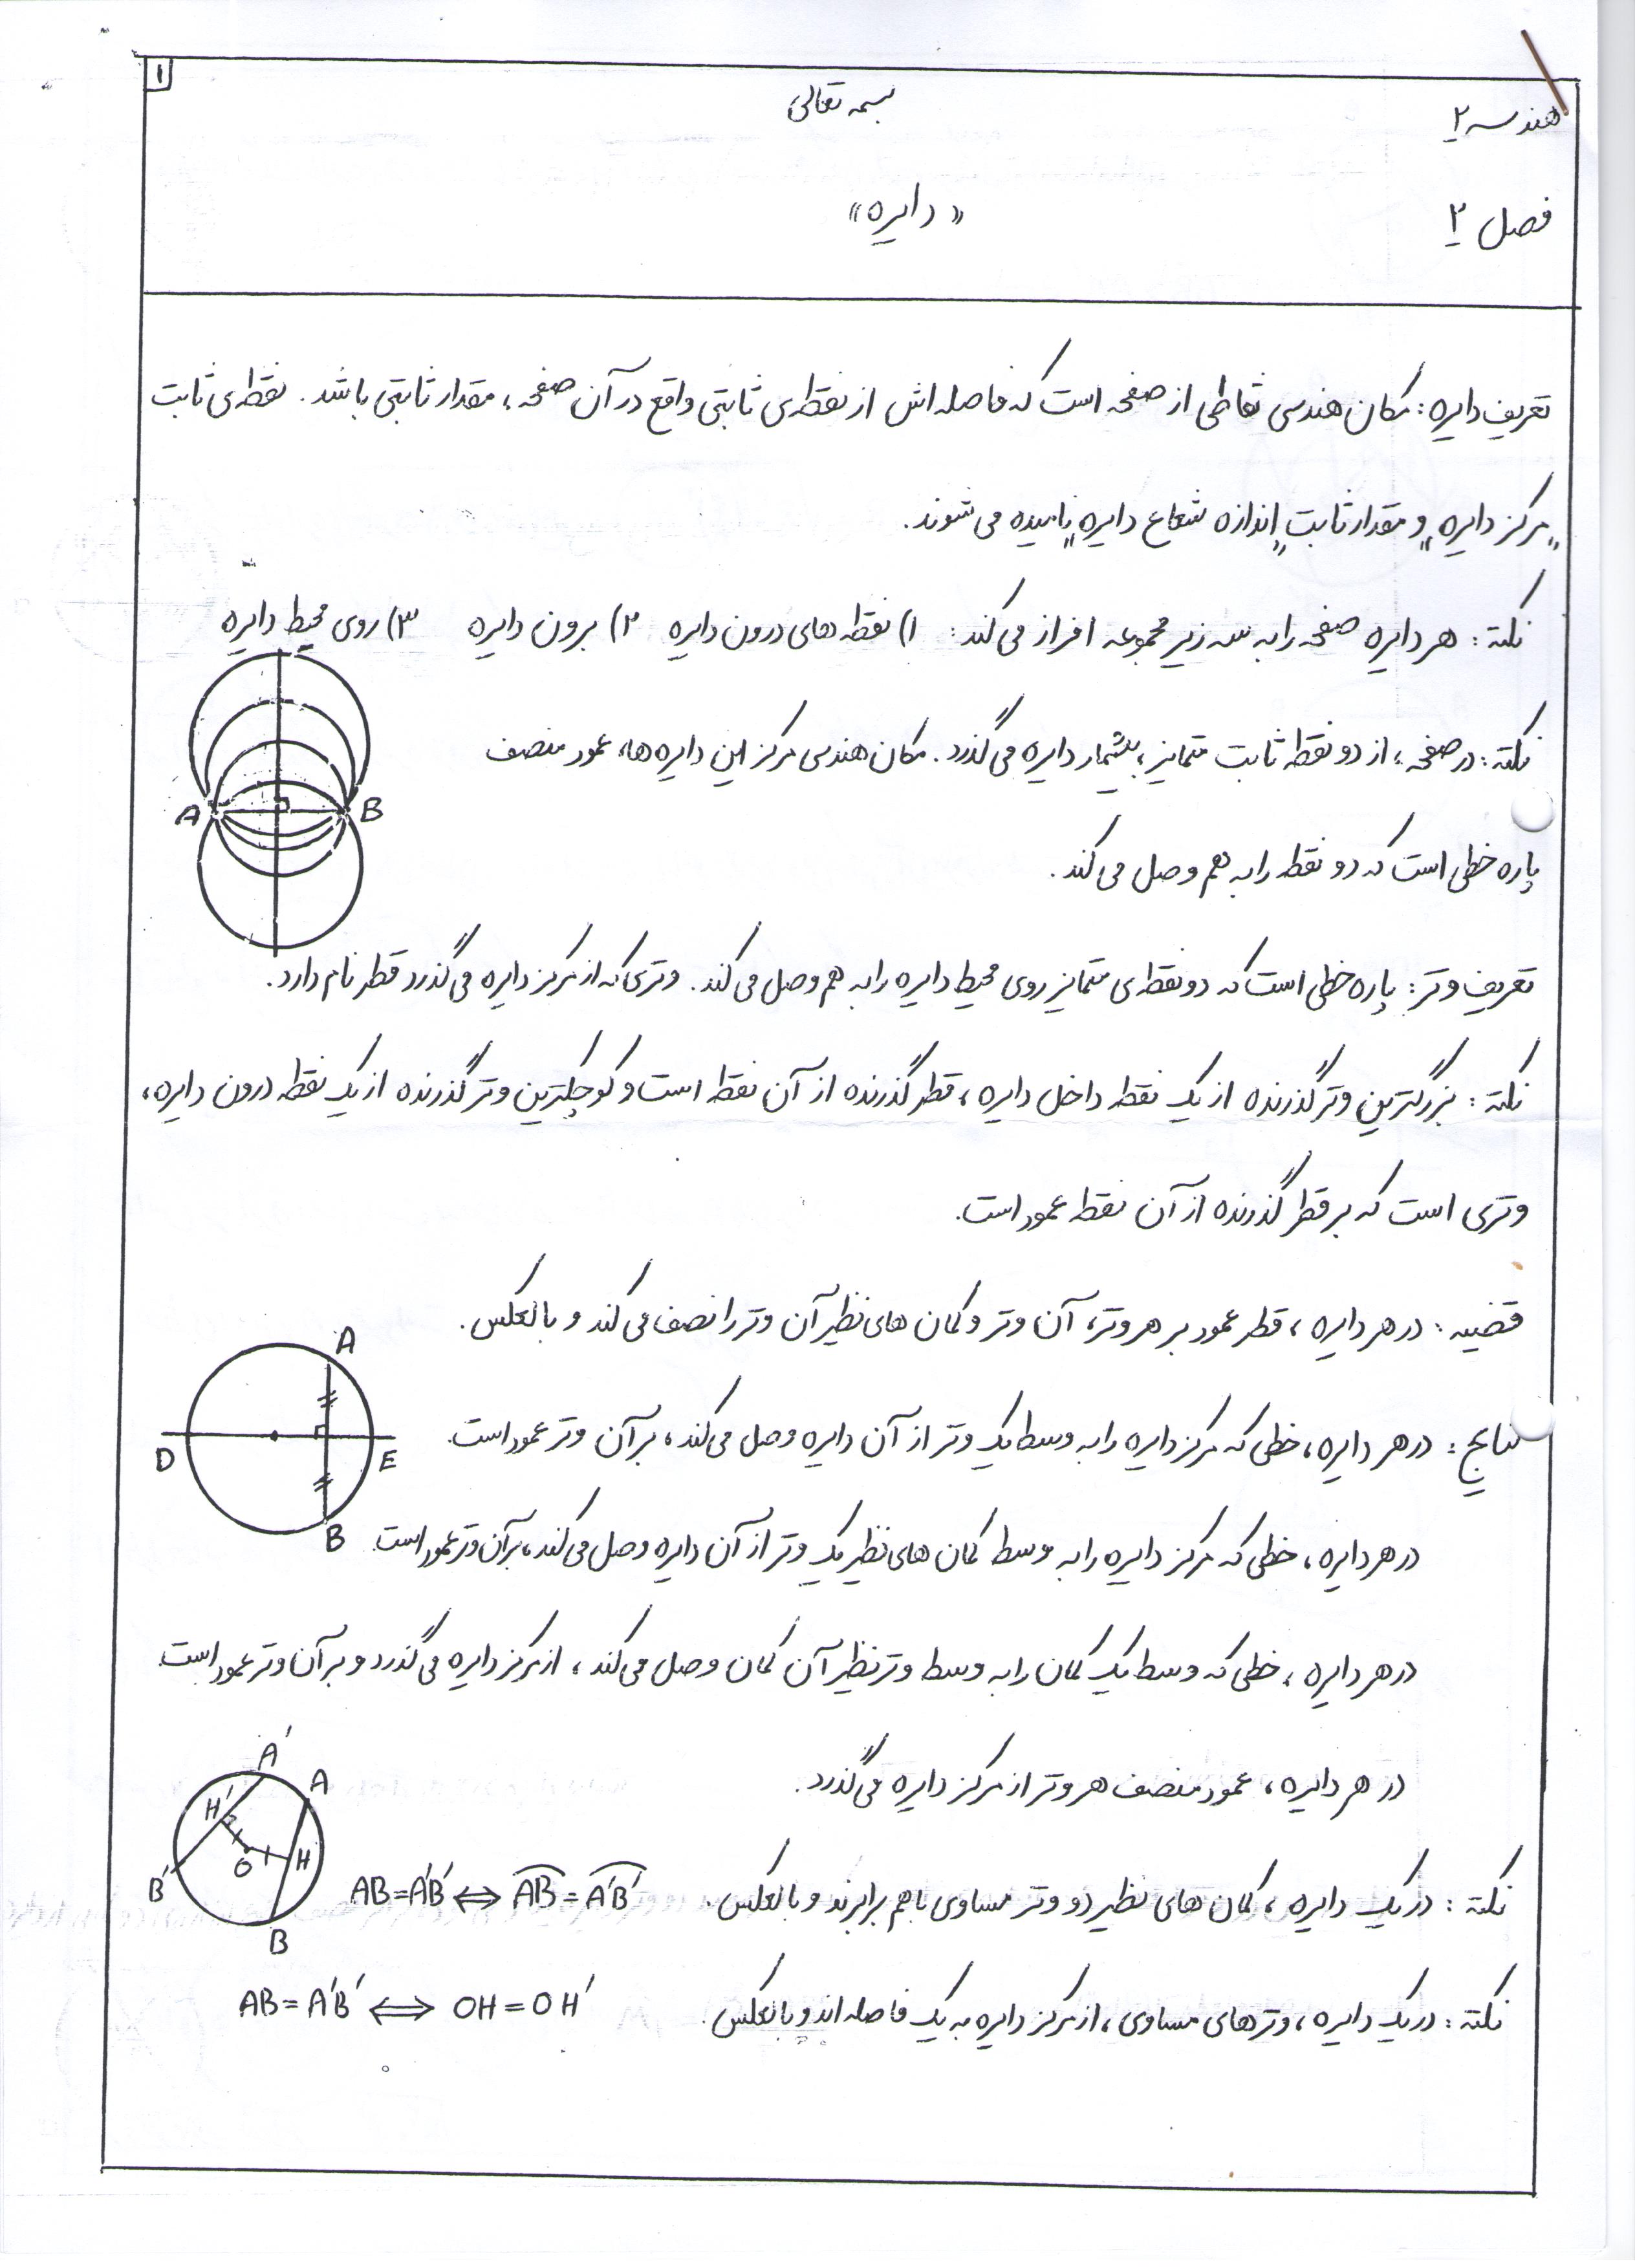 ۱
بسمه تعالی
هندسه ۲
« دایره »
فصل ۲
تعریف دایره : مکان هندسی نقاطی از صفحه است که فاصله اش از نقطه ی ثابتی واقع در آن صفحه ، مقدار ثابتی باشد . نقطه ی ثابت
"مرکز دایره" و مقدار ثابت "اندازه شعاع دایره" نامیده می شوند .
نکته : هر دایره صفحه را به سه زیر مجموعه افراز می کند : ۱) نقطه های درون دایره ۲) برون دایره ۳) روی محیط دایره
نکته : در صفحه ، از دو نقطه ثابت متمایز ، بیشمار دایره می گذرد . مکان هندسی مرکز این دایره ها، عمود منصف
A B
پاره خطی است که دو نقطه را به هم وصل می کند .
تعریف وتر : پاره خطی است که دو نقطه ی متمایز روی محیط دایره را به هم وصل می کند . وتری که از مرکز دایره می گذرد قطر نام دارد .
نکته : بزرگترین وتر گذرنده از یک نقطه داخل دایره ، قطر گذرنده از آن نقطه است و کوچکترین وتر گذرنده از یک نقطه درون دایره ،
وتری است که بر قطر گذرنده از آن نقطه عمود است .
قضیه : در هر دایره ، قطر عمود بر هر وتر، آن وتر و کمان های نظیر آن وتر را نصف می کند و بالعکس .
A
نتایج : در هر دایره ، خطی که مرکز دایره را به وسط یک وتر از آن دایره وصل می کند ، بر آن وتر عمود است .
D E
B
در هر دایره ، خطی که مرکز دایره را به وسط کمان های نظیر یک وتر از آن دایره وصل می کند ، بر آن وتر عمود است
در هر دایره ، خطی که وسط یک کمان را به وسط وتر نظیر آن کمان وصل می کند ، از مرکز دایره می گذرد و بر آن وتر عمود است
A′
A
در هر دایره ، عمود منصف هر وتر از مرکز دایره می گذرد .
H′
O H
B′
B
نکته : در یک دایره ، کمان های نظیر دو وتر مساوی با هم برابرند و بالعکس . AB=A′B′ ⟺ A͡B = A͡′B′
نکته : در یک دایره ، وترهای مساوی ، از مرکز دایره به یک فاصله اند و بالعکس . AB=A′B′ ⟺ OH=OH′